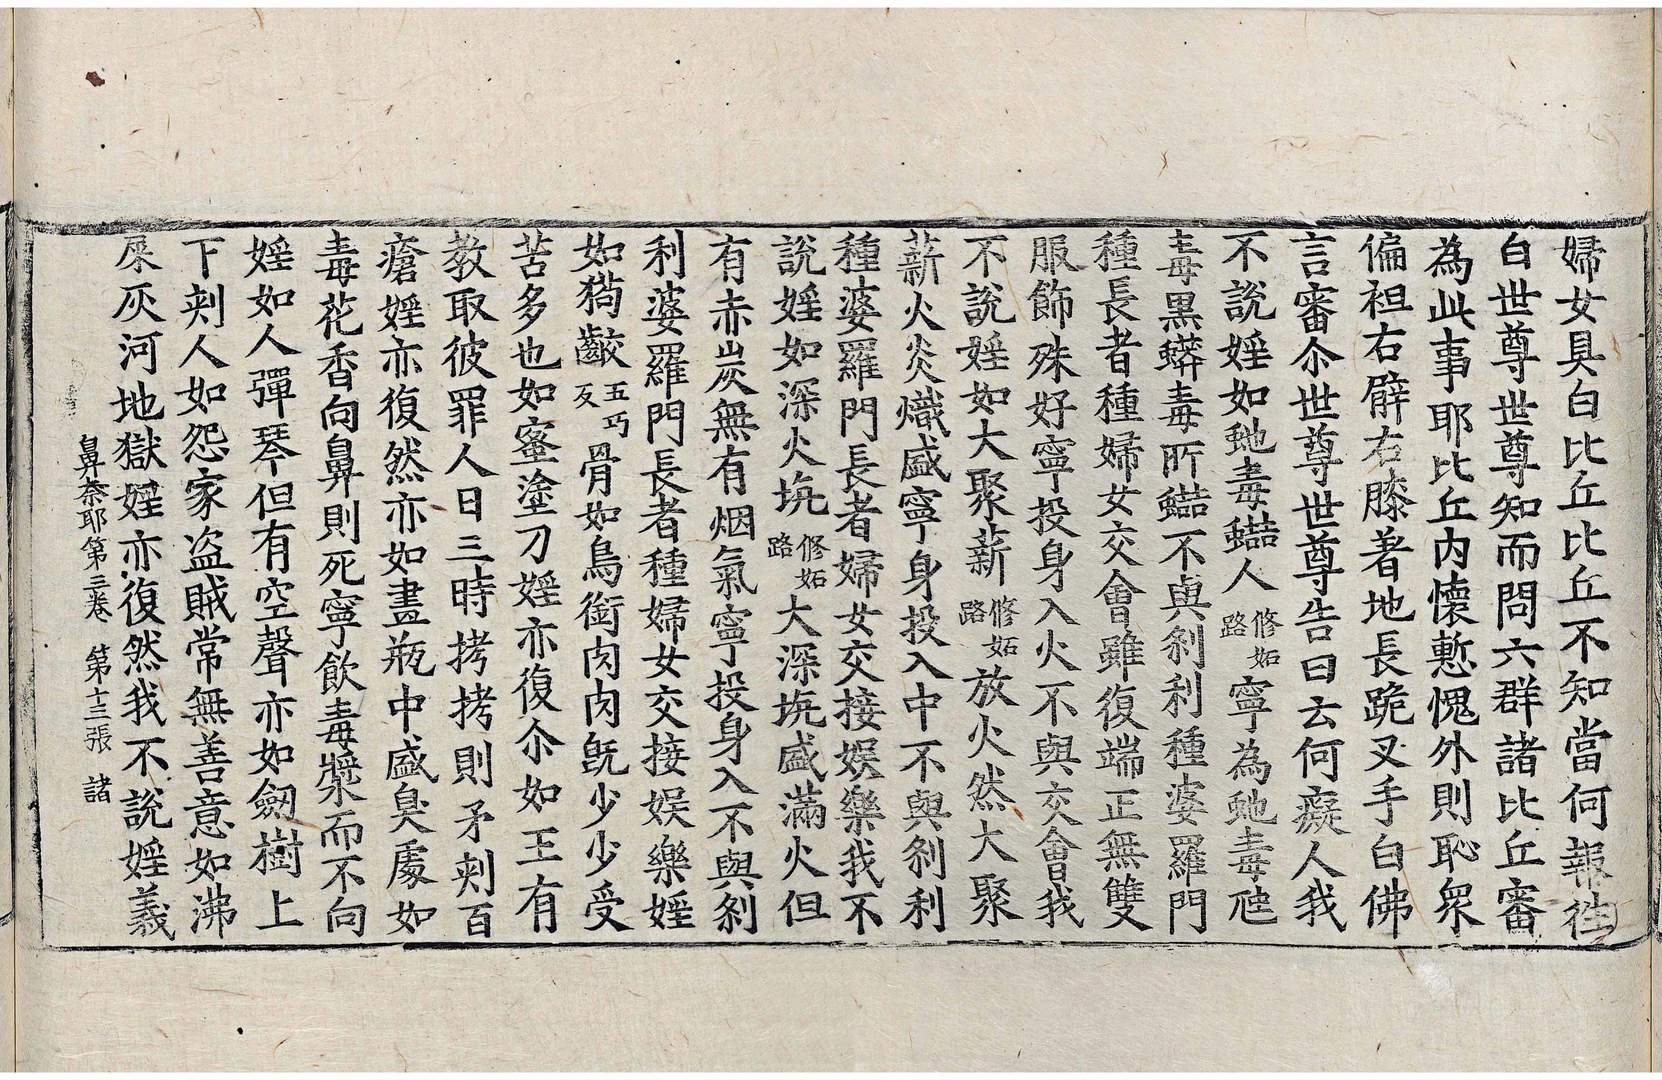 婦女具白比丘比丘不知當何報往
白世尊世尊知而問六群諸比丘審
為此事耶比丘內懷慙愧外則恥衆
偏袒右臂右膝著地長跪叉手白佛
言審尒世尊世尊告曰云何癡人我
不說婬如虵毒蠚人修妬路寧為虵毒虺
毒黑蟒毒所蠚不與刹利種婆羅門
種長者種婦女交會雖復端正無雙
服飾殊好寧投身入火不與交會我
不說婬如大聚薪修妬路放火然大聚
薪火炎熾盛寧身投入中不與刹利
種婆羅門長者婦女交接娛樂我不
說婬如深火坑修妬路大深坑盛滿火但
有赤炭無有烟氣寧投身入不與刹
利婆羅門長者種婦女交接娛樂婬
如狗齩五巧反骨如鳥銜肉肉旣少少受
苦多也如蜜塗刀婬亦復尒如王有
教取彼罪人日三時拷拷則矛刾百
瘡婬亦復然亦如畫瓶中盛臭處如
毒花香向鼻則死寧飲毒漿而不向
婬如人彈琴但有空聲亦如劒樹上
下刾人如怨家盜賊常無善意如沸
屎灰河地獄婬亦復然我不說婬義
鼻奈耶第三卷 第十三張 諸